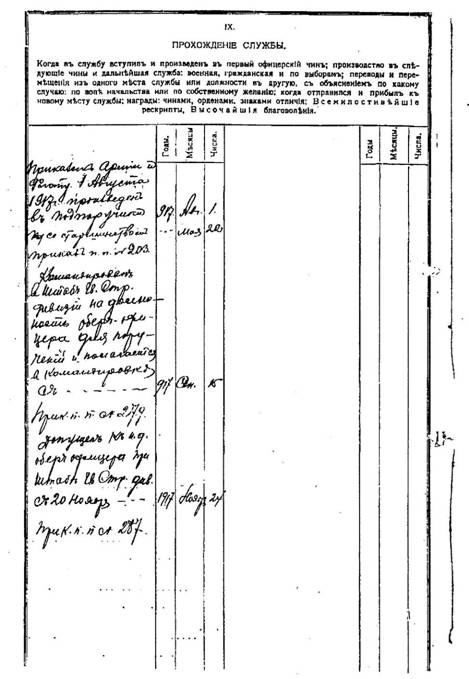 IX.
ПРОХОЖДЕНІЕ СЛУЖБЫ.
Когда въ службу вступилъ и произведенъ въ первый офицерскій чинъ; производство въ слѣ-
дующіе чины и дальнѣйшая служба: военная, гражданская и по выборамъ; переводы и пере-
мѣщенія изъ одного мѣста службы или должности въ другую, съ объясненіемъ по какому
случаю: по волѣ начальства или по собственному желанію; когда отправился и прибылъ къ
новому мѣсту службы; награды: чинами, орденами, знаками отличія; Всемилостивѣйшіе
рескрипты, Высочайшія благоволенія.
Годы. Мѣсяцы. Числа. Годы. Мѣсяцы. Числа.
Приказомъ Арміи и
Флоту 1 Августа
1917г. произведен
въ подпоручики 917. Ав. 1.
со старшинством 22
приказ п. п. № 203
Командирован
в Штабъ Ив. Стр.
дивизіи на долж-
ность оберъ-офи-
цера для пору-
ченій и полагается
в командировке
917 Сен. 15
Прик. п. п №
Допущен къ и. д.
оберъ офицера при
Штабѣ Стр. див.
съ 20 Ноября 1917 Нояб 24
Прик. п. п № 287.